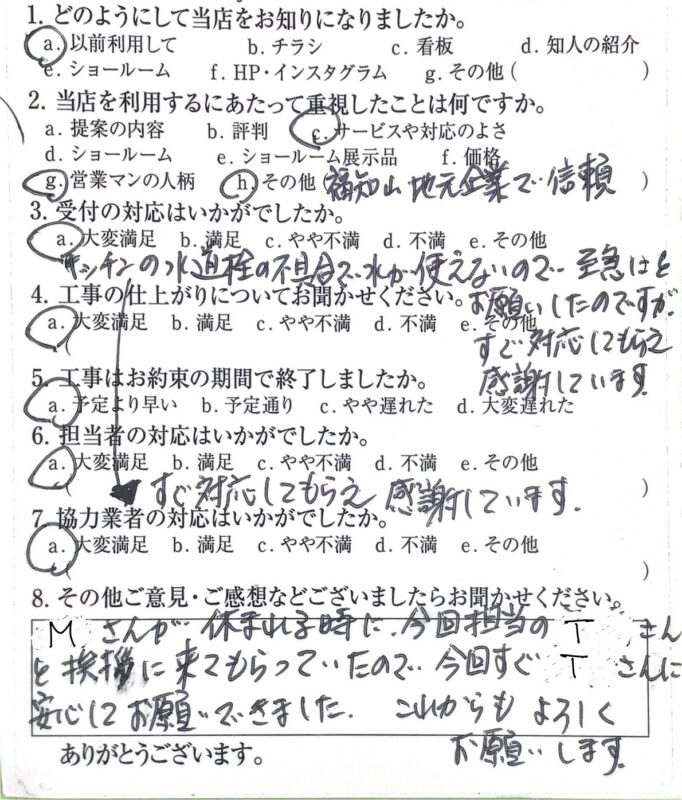 1. どのようにして当店をお知りになりましたか。
a. 以前利用して b. チラシ c. 看板 d. 知人の紹介
e. ショールーム f. HP・インスタグラム g. その他 ( )
2. 当店を利用するにあたって重視したことは何ですか。
a. 提案の内容 b. 評判 c. サービスや対応のよさ
d. ショールーム e. ショールーム展示品 f. 価格
g. 営業マンの人柄 h. その他 ( 福知山 地元企業で信頼 )
3. 受付の対応はいかがでしたか。
a. 大変満足 b. 満足 c. やや不満 d. 不満 e. その他
キッチンの水道栓の不具合で水が使えないので 至急はを
お願いしたのですが
すぐ対応してもらえ
感謝しています。
4. 工事の仕上がりについてお聞かせください。
a. 大変満足 b. 満足 c. やや不満 d. 不満 e. その他
(
5. 工事はお約束の期間で終了しましたか。
a. 予定より早い b. 予定通り c. やや遅れた d. 大変遅れた
6. 担当者の対応はいかがでしたか。
a. 大変満足 b. 満足 c. やや不満 d. 不満 e. その他
( すぐ対応してもらえ 感謝しています。 )
7. 協力業者の対応はいかがでしたか。
a. 大変満足 b. 満足 c. やや不満 d. 不満 e. その他
( )
8. その他ご意見・ご感想などございましたらお聞かせください。
M さんが 休まれる時に、今回担当の T さん
と挨拶に来てもらっていたので 今回すぐ T さんに
安心してお願いできました. これからも よろしく
お願いします。
ありがとうございます。